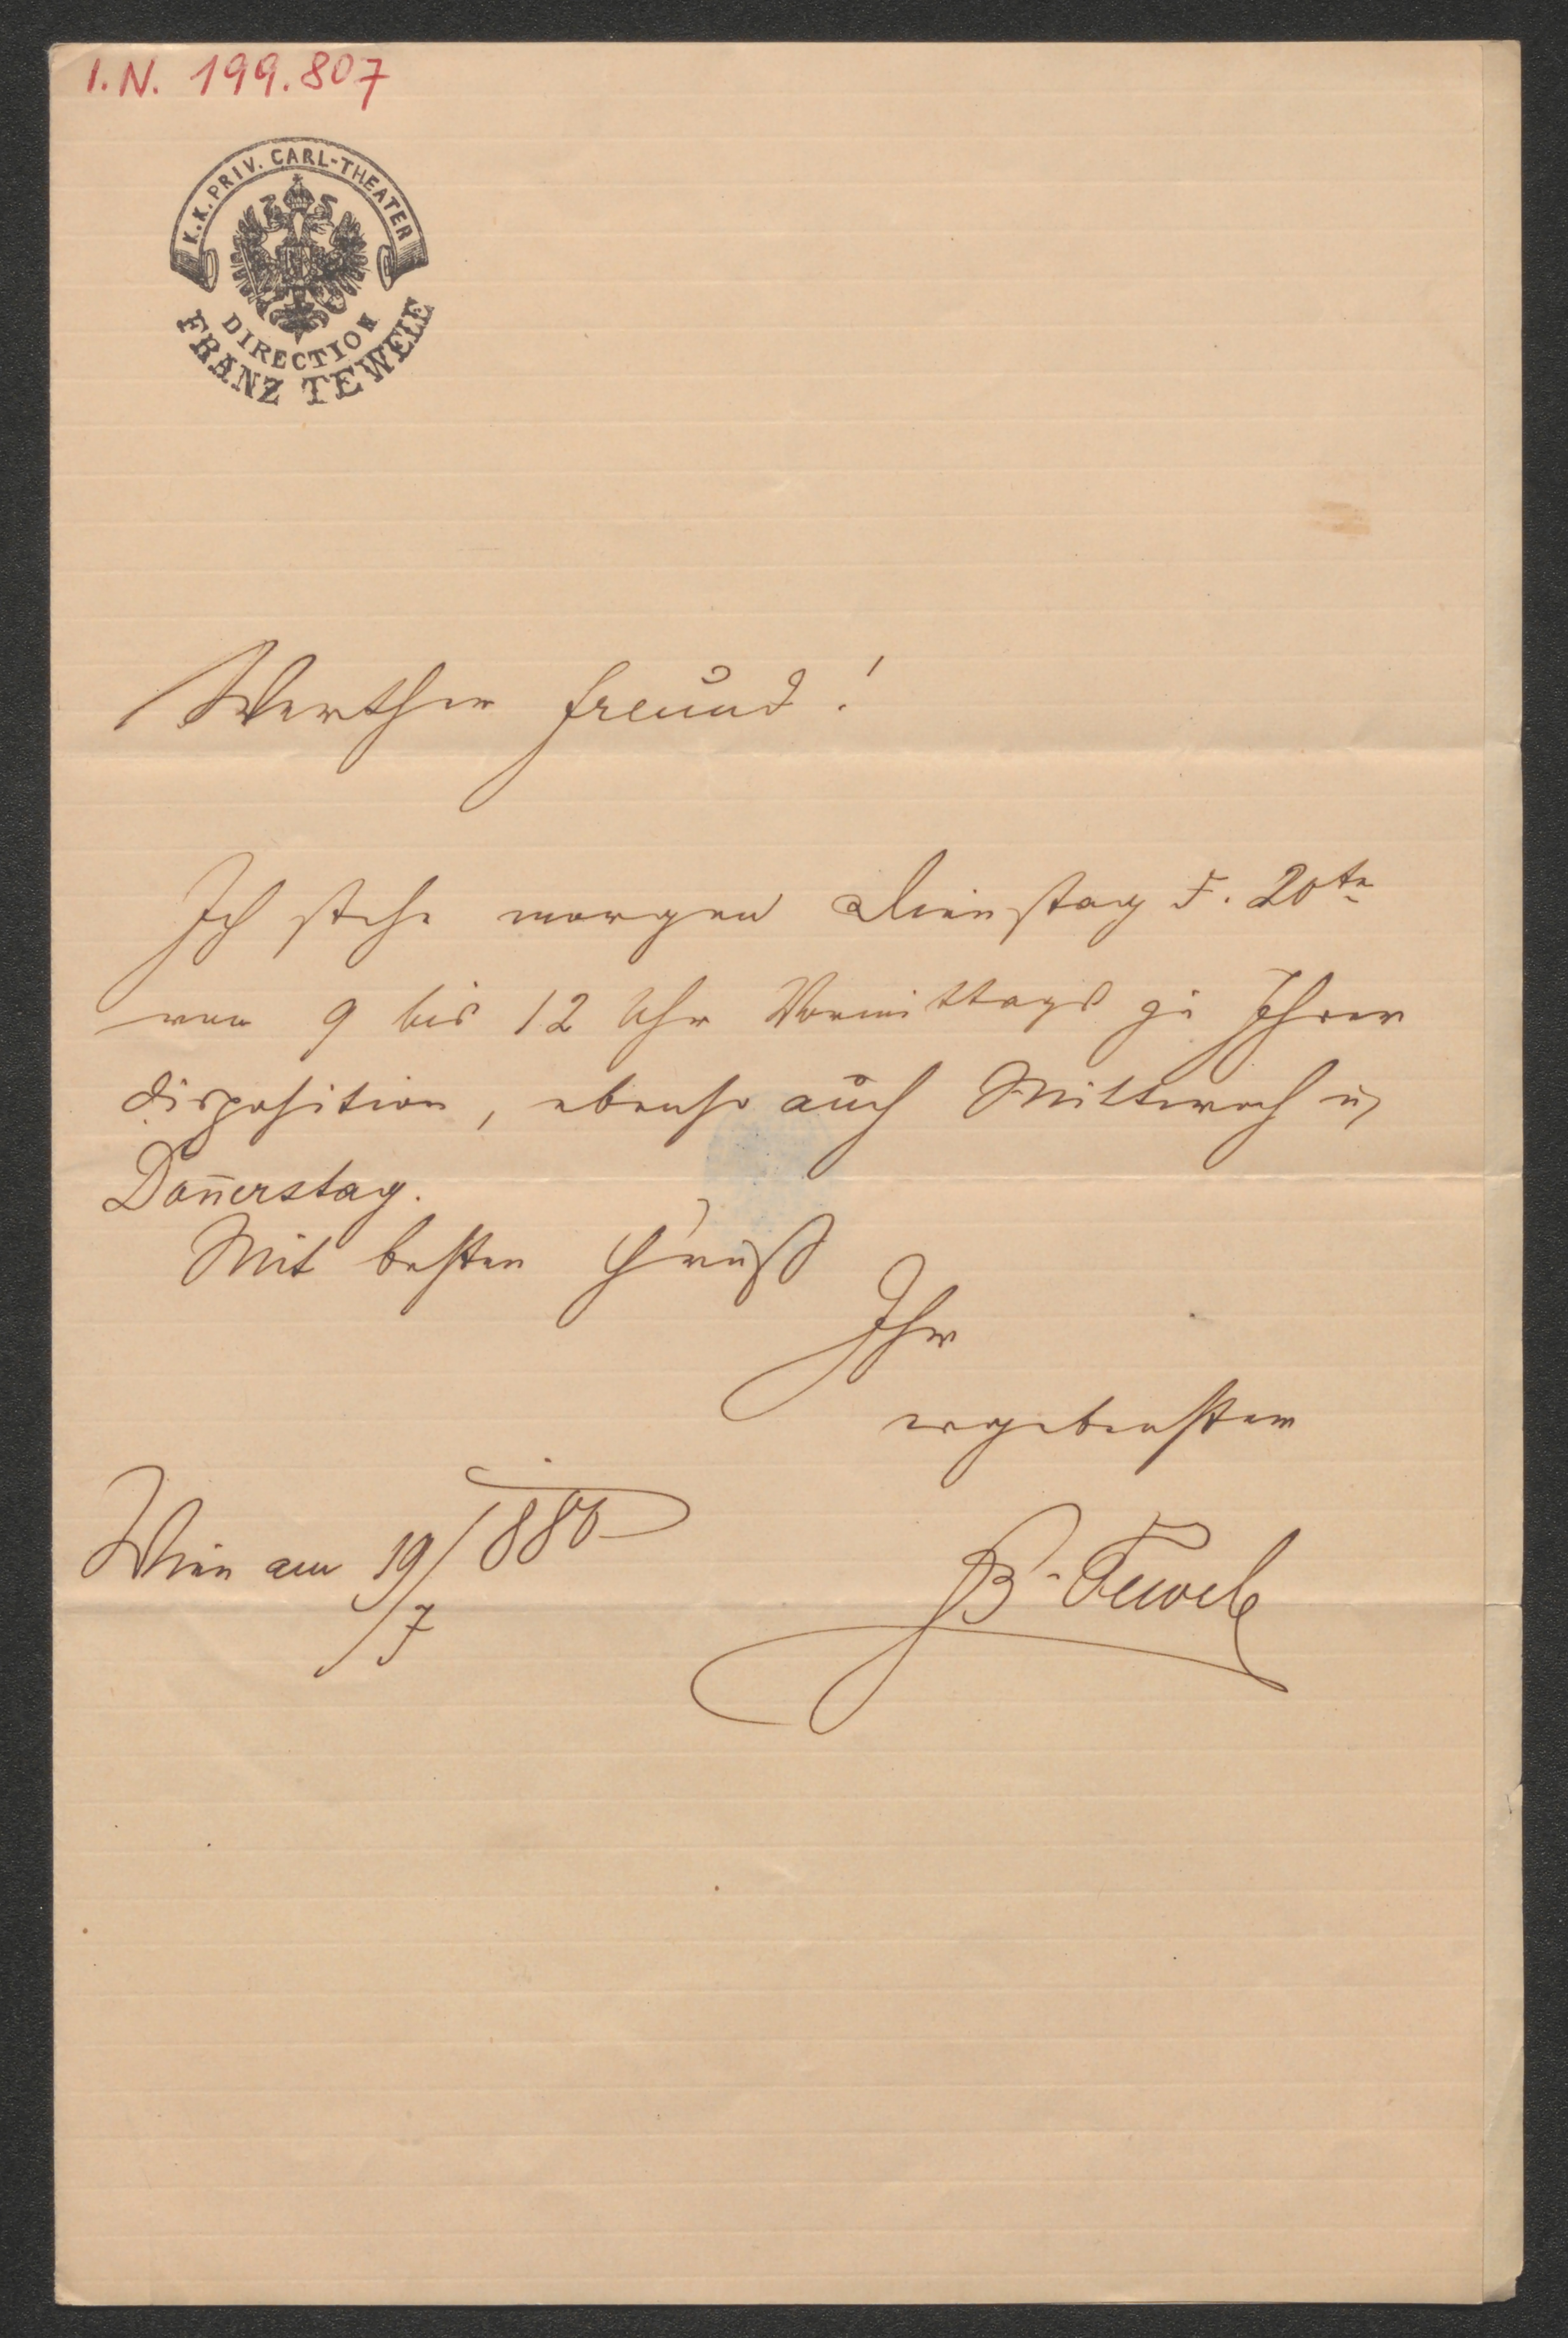 I.N. 199.807
K.K. PRIV. CARL-THEATER
DIRECTION
FRANZ TEWELE
Werther Freund!
Ich stehe morgen Dienstag d. 20te
von 9 bis 12 Uhr Vormittags zu Ihrer
disposition, ebenso auch Mittwoch u
Don̄erstag.
Mit besten Gruß
Ihr
ergebenster
Wien am 19/7 1880
Tewele